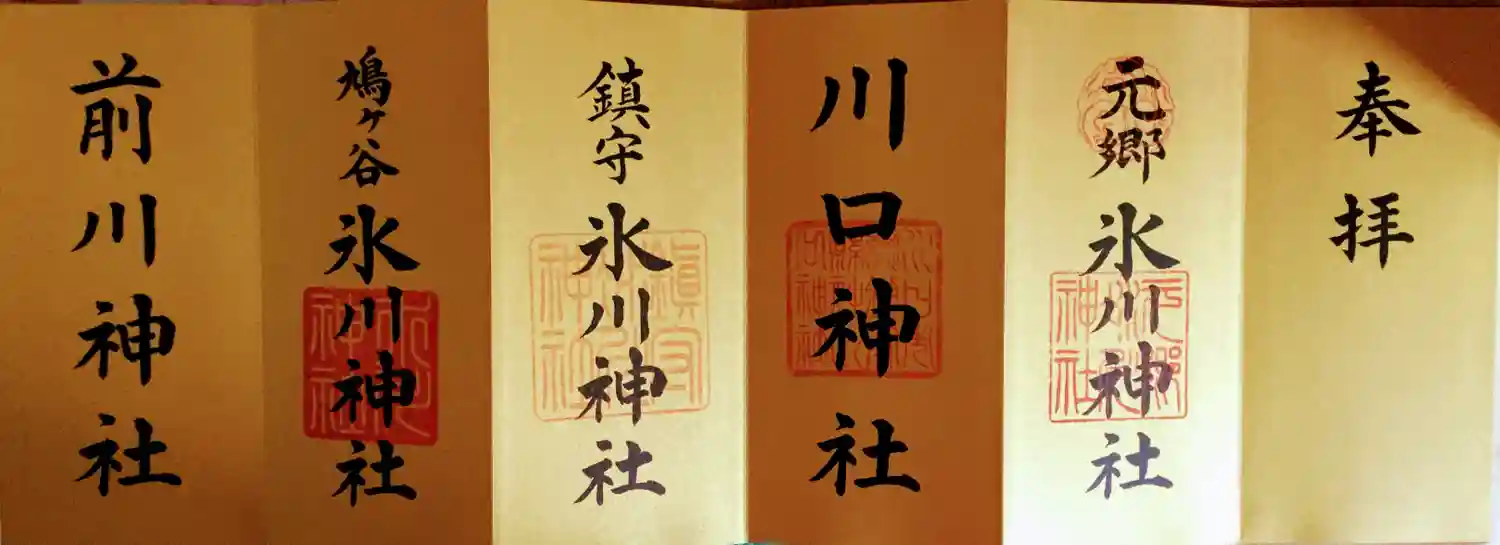 奉拝
元郷氷川神社
川口神社
鎮守氷川神社
鳩ヶ谷氷川神社
前川神社